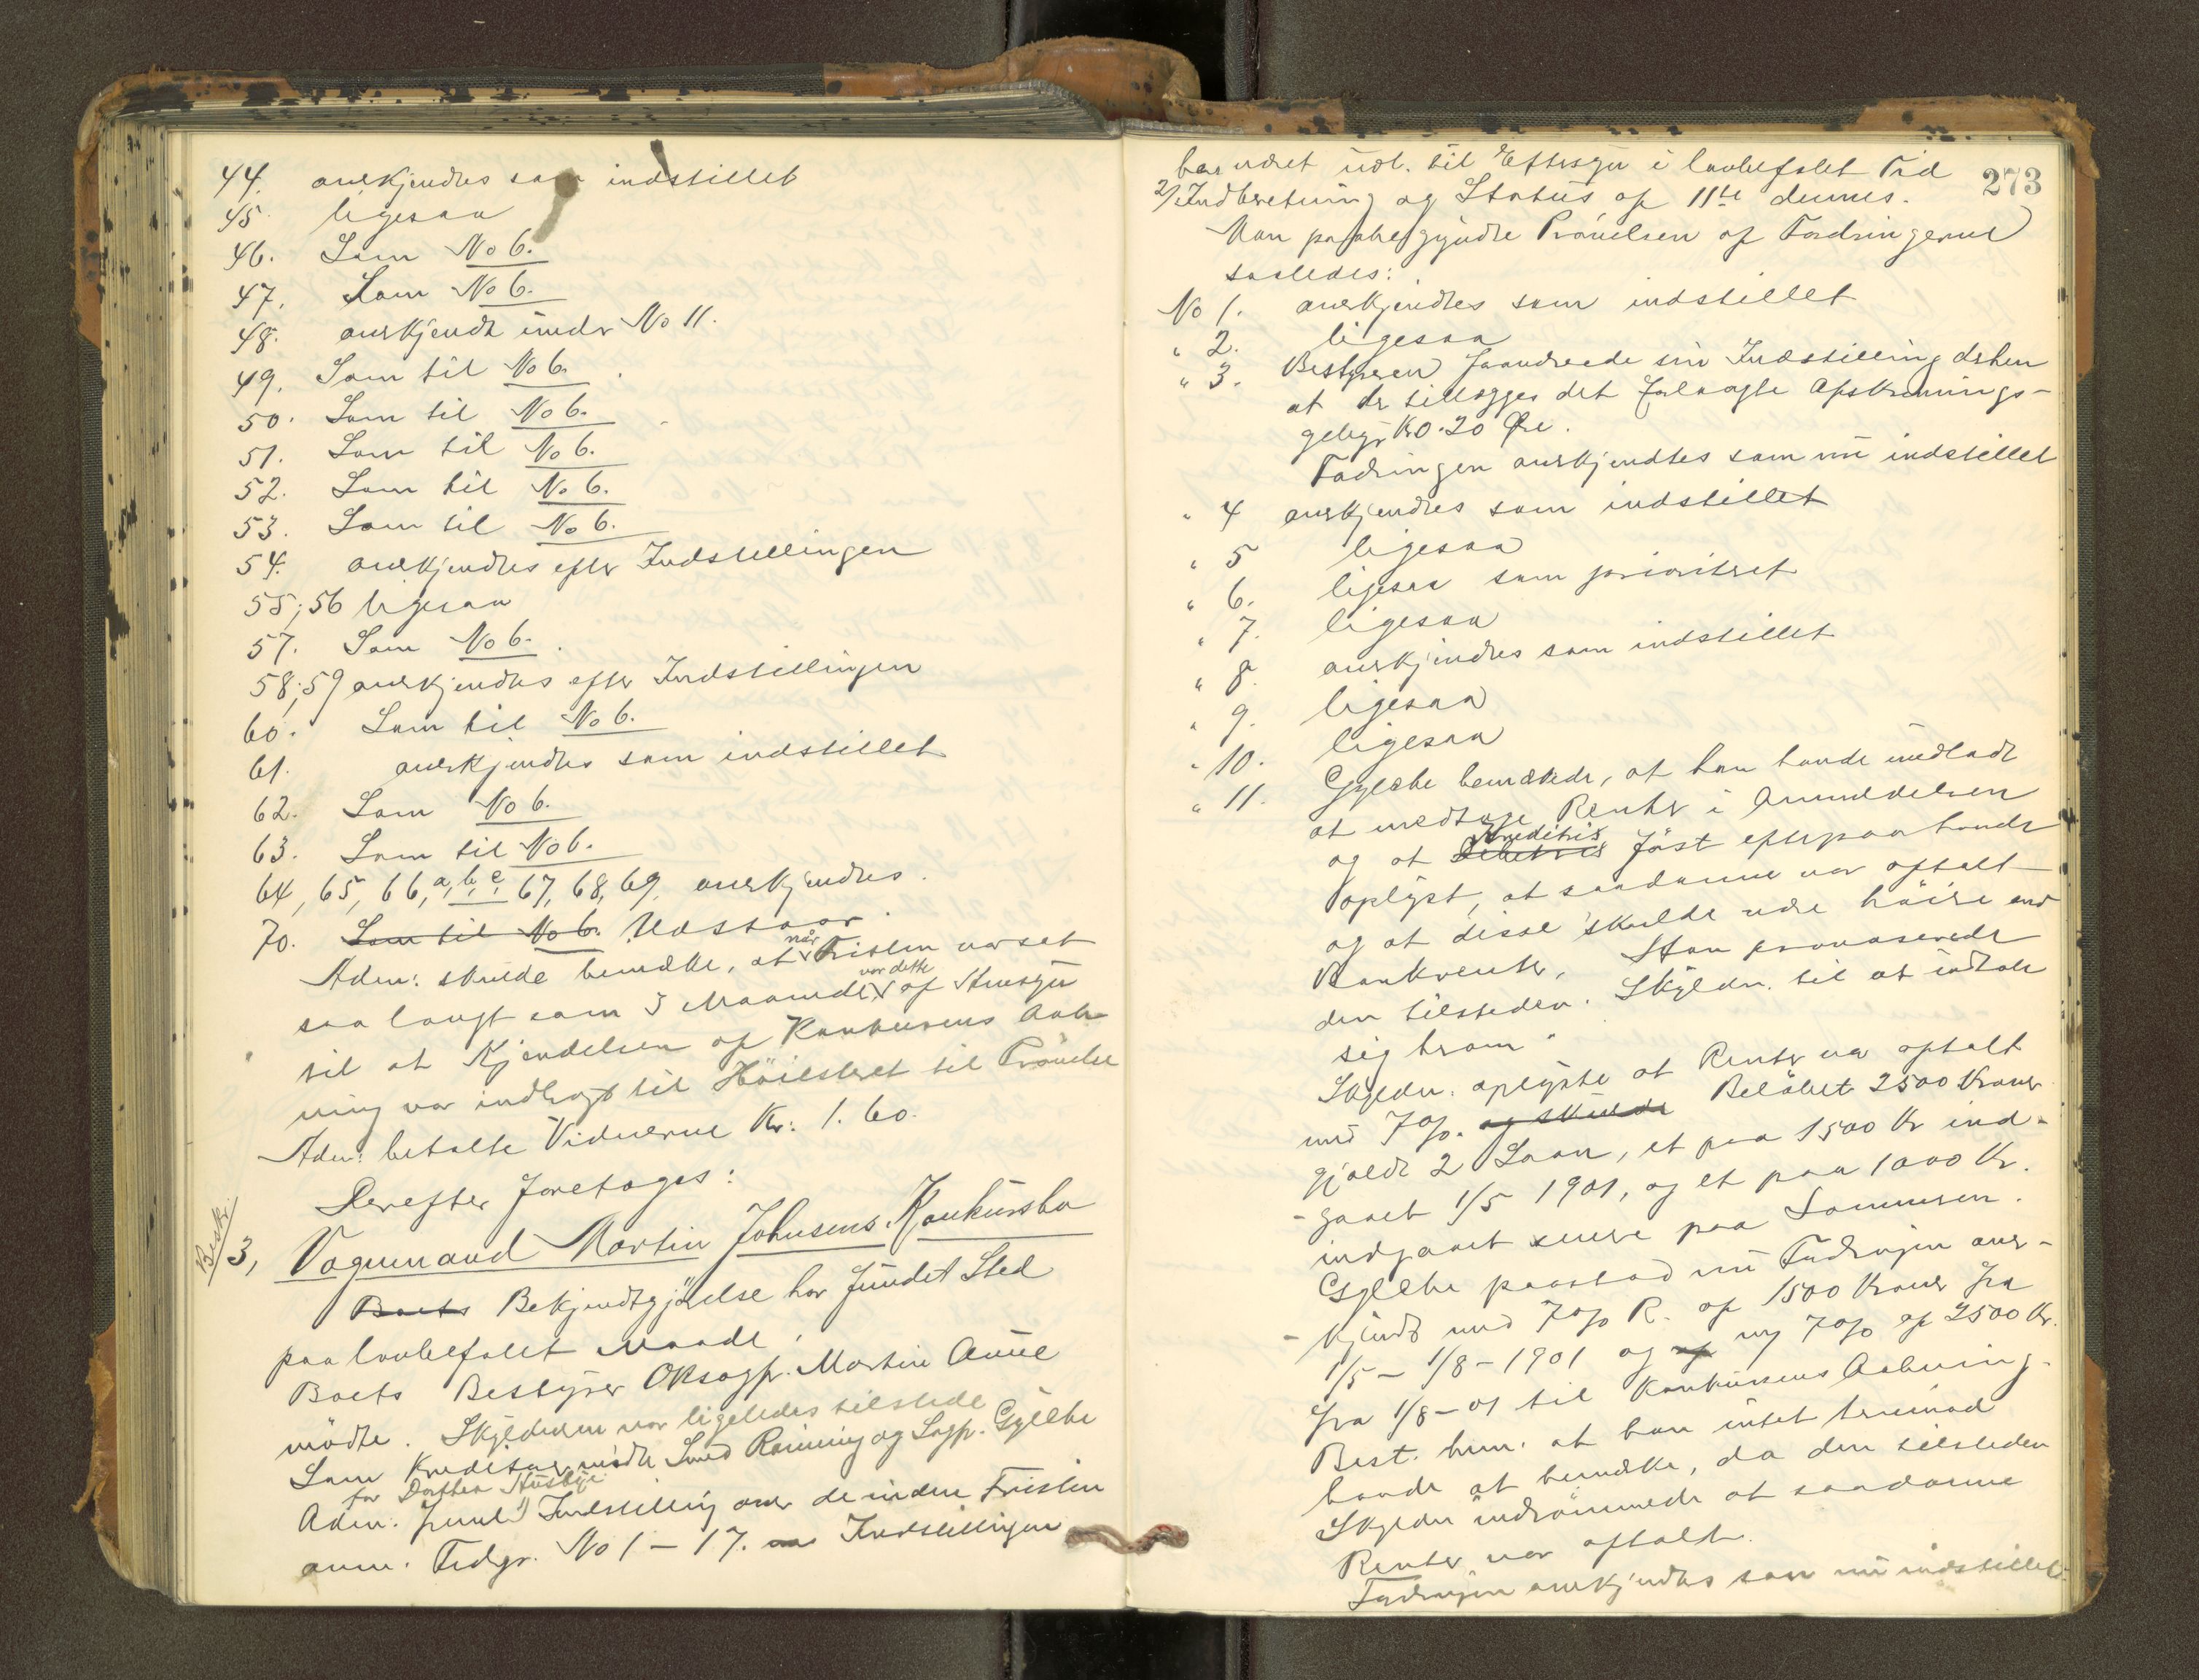 44. anerkjendtes som indstillet
45. ligesaa
46. Som No 6.
47. Som No 6.
48. anerkjendt under No 11.
49. Som til No 6.
50. Som til No 6.
51. Som til No 6.
52. Som til No 6.
53. Som til No 6.
54. anerkjendtes efter Indstillingen
55; 56 ligesaa
57. Som No 6.
58; 59 anerkjendtes efter Indstillingen
60. Som til No 6.
61. anerkjendtes som indstillet
62. Som No 6.
63. Som til No 6.
64, 65, 66, a, b, c, 67, 68, 69, anerkjendtes.
70. Som til No 6. Udstaar.
Adm: skulde bemærke, at når Fristen var sat
saa langt som 3 Maaneder var dette af Hensyn
til at Kjendelsen af Konkursens Aab-
ning var indbragt til Höiesteret til Prövelse
Adm: betalte Vidnerne Kr: 1.60.
Derefter foretoges:
Beskr.
3, Vognmand Martin Johnsens Konkursbo
Boets Bekjendtgjörelse har fundet Sted
paa lovbefalet Maade.
Boets Bestyrer ORsagf. Martin Aune
mödte. Skyldneren var ligeledes tilstede
Som Kreditor mödte Smed Rönning og Sagf. Gylche
for Dorthea Husbye
Adm. freml. 1) Indstilling over de inden Fristen
anm. Fordgr. No 1 - 17. Indstillingen
273
har været udl. til Eftersyn i lovbefalet Tid
2/ Indberetning og Status af 11te dennes.
Man paabegyndte Prövelsen af Fordringerne
saaledes:
No 1. anerkjendtes som indstillet
" 2. ligesaa
" 3. Bestyreren forandrede sin Indstilling derhen
at der tillægges det forlangte Afskrivnings-
gebyr Kr 0.20 Øre.
Fordringen anerkjendtes som nu indstillet
" 4 anerkjendtes som indstillet
" 5 ligesaa
" 6. ligesaa som prioritert
" 7. ligesaa
" 8. anerkjendtes som indstillet
" 9. ligesaa
" 10. ligesaa
" 11. Gylche bemærkede, at han havde undladt
at medtage Renter i Anmeldelsen
og at Debitrix Kreditrix först efterpaa havde
oplyst, at saadanne var aftalt
og at disse skulde være höiere end
Bankrenter. Han provoserede
den tilstedev. Skyldn. til at udtale
sig herom.
Skyldn. oplyste at Renter var aftalt
med 7%. og skulde Belöbet 2500 Kroner
gjaldt 2 Laan, et paa 1500 Kr ind-
-gaaet 1/5 1901, og et paa 1000 Kr.
indgaaet senere paa Sommeren.
Gylche paastod nu Fordringen aner-
-kjendt med 7% R. af 1500 Kroner fra
1/5 - 1/8 - 1901 og af ny 7% af 2500 Kr.
fra 1/8 - 01 til Konkursens Aabning.
Best. bem. at han intet herimod
havde at bemærke, da den tilstedev.
Skyldn indrömmede at saadanne
Renter var aftalt.
Fordringen anerkjendtes som nu indstillet.